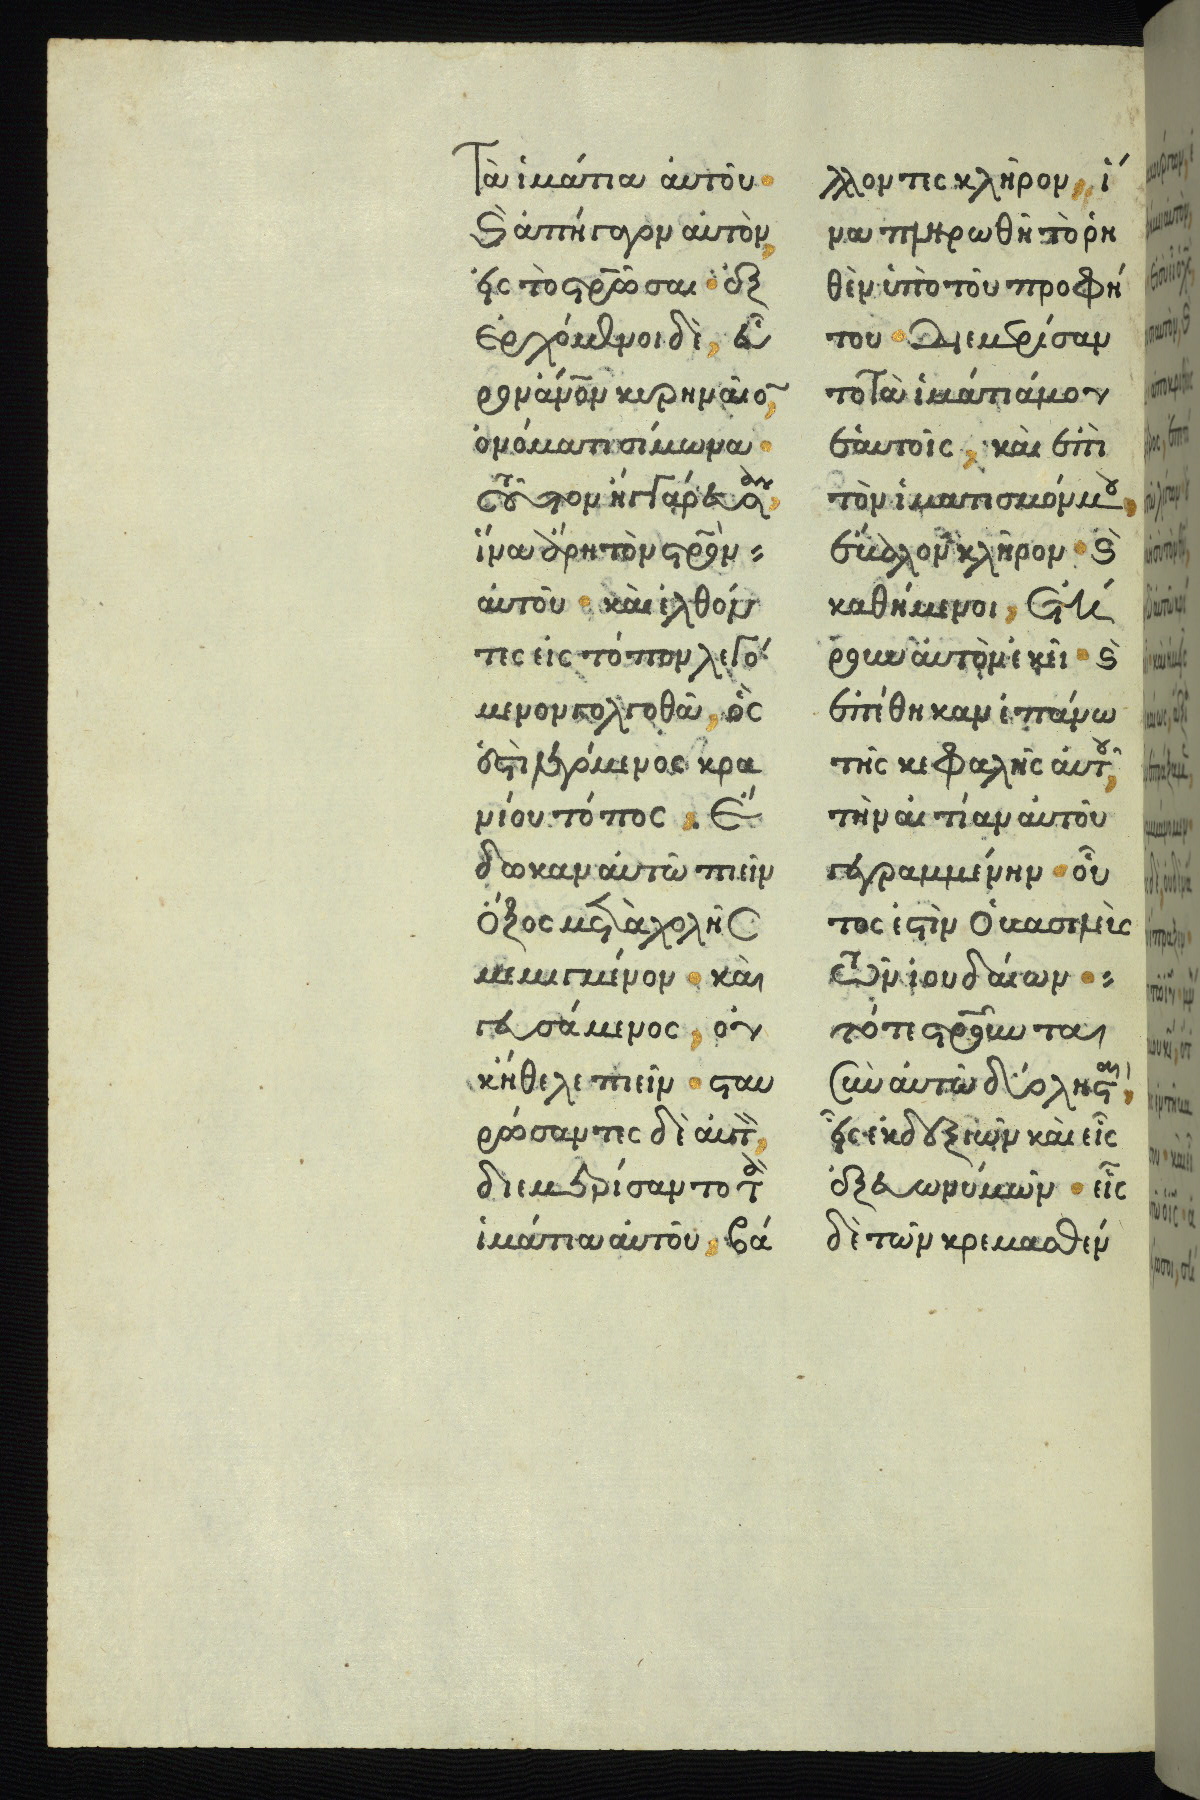 Τὰ ἱμάτια ἀυτοῦ·
καὶ ἀπήγαγον ἀυτὸν,
ἐις τὸ σταυρῶσαι· ἐξ
ερχόμενοι δὲ, εὗ
ρον ἄνον κυρηναῖον,
ὀνόματι σίμωνα·
τοῦτον ἠγγάρευσαν,
ἵνα ἄρῃ τὸν σταυρὸν
ἀυτοῦ· καὶ ἐλθόν
τες εἰς τόπον λεγό
μενον γολγοθᾶ, ὅς
ἐστι λεγόμενος κρα
νίου τόπος, ἔ
δωκαν ἀυτῶ πιεῖν
ὄξος μετὰ χολῆς
μεμιγμένον· καὶ
γευσάμενος, οὐ
κ ἤθελε πιεῖν· σταυ
ρώσαντες δὲ ἀυτὸν,
διεμερίσαντο τὰ
ἱμάτια ἀυτοῦ, βά
λλοντες κλῆρον, ἵ
να πληρωθῆ τὸ ῥη
θὲν ὑπὸ τοῦ προφή
του· Διεμερίσαν
το τὰ ἱμάτιά μου
ἑαυτοῖς, καὶ ἐπὶ
τὸν ἱματισμόν μου,
ἔβαλον κλῆρον· καὶ
καθήμενοι, ἐτή
ρουν ἀυτὸν ἐκεῖ· καὶ
ἐπέθηκαν ἐπάνω
τῆς κεφαλῆς ἀυτοῦ,
τὴν αἰτίαν ἀυτοῦ
γεγραμμένην· οὗ
τος ἐστὶν ὁ βασιλεὺς
τῶν ἰουδαίων·
τότε σταυροῦνται
σὺν ἀυτῶ δύο λησταὶ,
εἷς ἐκ δεξιῶν καὶ εἷς
ἐξ ευωνύμων· εἷς
δὲ τῶν κρεμασθέν